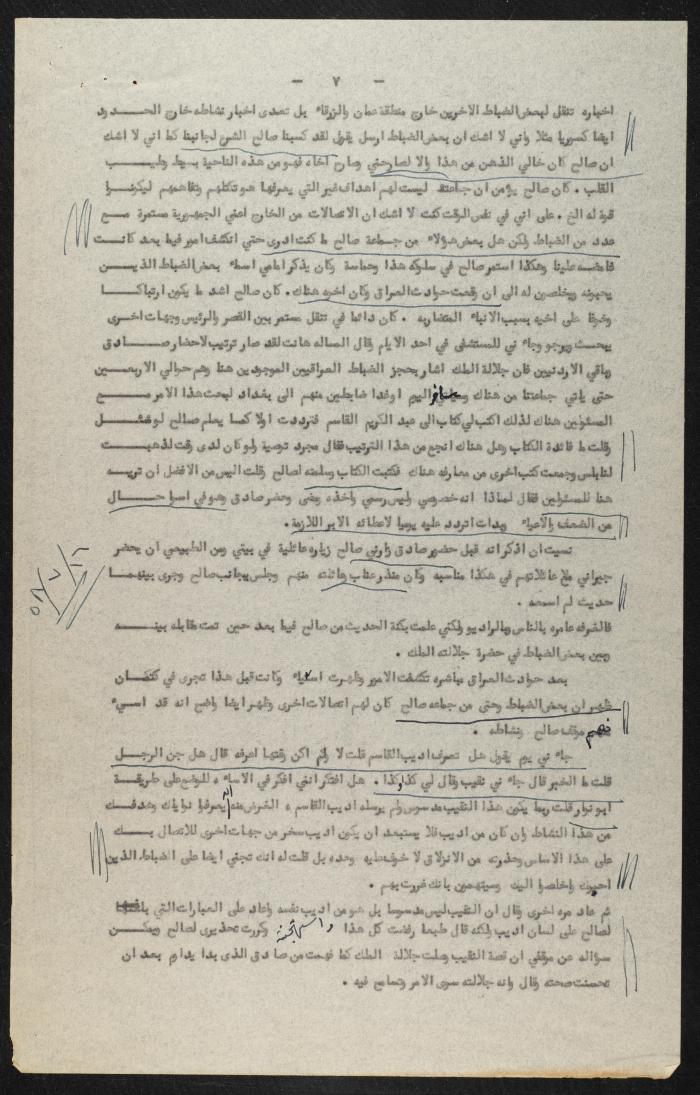 - ٧ -
اخباره تنتقل لبعض الضباط الاخرين خارج منطقة عمان والزرقاء بل تعدى اخبار نشاطه خارج الحدود
ايضا كسوريا مثلا واني لا اشك ان بعض الضباط ارسل يقول لقد كسبنا صالح الشرع لجانبنا كما اني لا اشك
ان صالح كان خالي الذهن من هذا والا لصارحني وصارح اخاه فهو من هذه الناحية بسيط وطيب
القلب . كان صالح يؤمن ان جماعته ليست لهم اهداف غير التي يعرفها هو تكتلهم وتفاهمهم ليكونوا
قوة له الخ . على اني في نفس الوقت كنت لا اشك ان الاتصالات من الخارج اعني الجمهورية مستمرة مع
عدد من الضباط ولكن هل بعض هؤلاء من جماعة صالح ما كنت ادرى حتى انكشف امور فيما بعد كانت
غامضه علينا وهكذا استمر صالح في سلوكه هذا وحماسة وكان يذكر امامي اسماء بعض الضباط الذين
يحبونه ويخلصون له الى ان وقعت حوادث العراق وكان اخوه هناك . كان صالح اشد ما يكون ارتباكا
وخوفا على اخيه بسبب الانباء المتضاربه . كان دائما في تنقل مستمر بين القصر والرئيس وجهات اخرى
يبحث ويرجو وجاءني للمستشفى في احد الايام وقال المساله هانت لقد صار ترتيب لاحضار صادق
وباقي الاردنيين فان جلالة الملك اشار بحجز الضباط العراقيين الموجودين هنا وهم حوالي الاربعين
حتى ياتي جماعتنا من هناك وسافر اليوم اوغدا ضابطين منهم الى بغداد لبحث هذا الامر مع
المسئولين هناك لذلك اكتب لي كتاب الى عبد الكريم القاسم فترددت اولا كما يعلم صالح لو سئل
وقلت ما فائدة الكتاب وهل هناك انجع من هذا الترتيب فقال مجرد توصية ولو كان لدى وقت لذهبت
لنابلس وجمعت كتب اخرى من معارفه هناك فكتبت الكتاب وسلمته لصالح وقلت اليس من الافضل ان تريه
هنا للمسئولين فقال لماذا انه خصوصي وليس رسمي واخذه ومضى وحضر صادق وهو في اسوا حال
من الضعف والاعياء وبدات اتردد عليه يوميا لاعطائه الابر اللازمة .
نسيت ان اذكر انه قبل حضور صادق زارني صالح زياره عائلية في بيتي ومن الطبيعي ان يحضر
جيراني مع عائلاتهم في هكذا مناسبه وكان منذر عناب وعائلته منهم وجلس بجانب صالح وجرى بينهما
حديث لم اسمعه .
فالغرفه عامره بالناس وبالراديو ولكني علمت بكنة الحديث من صالح فيما بعد حين تمت مقابله بينه
وبين بعض الضباط في حضرة جلالته الملك .
بعد حوادث العراق مباشره تكشفت الامور وظهرت اشياء وكانت قبل هذا تجرى في كتمان
ظهر ان بعض الضباط وحتى من جماعه صالح كان لهم اتصالات اخرى وظهر ايضا واضح انه قد اسيء
فهم موقف صالح ونشاطه .
جاءني يوم يقول هل تعرف اديب القاسم قلت لا ولم اكن وقتها اعرفه قال هل جن الرجل
قلت ما الخبر قال جاءني نقيب وقال لي كذا وكذا . هل افتكر انني افكر في الاساءه للوضع على طريقة
ابو نوار قلت ربما يكون هذا النقيب مدسوس ولم يرسله اديب القاسم ء الغرض منه ان يعرفوا نواياك وهدفك
من هذا النشاط وان كان من اديب فلا يستبعد ان يكون اديب سخر من جهات اخرى للاتصال بك
على هذا الاساس وحذرته من الانزلاق لا خوف عليه وحده بل قلت له انك تجني ايضا على الضباط الذين
احبوك واخلصوا اليك وسيتهمون بانك غررت بهم .
ثم عاد مره اخرى وقال ان النقيب ليس مدسوسا بل هو من اديب نفسه واعاد على العبارات التي
لصالح على لسان اديب ولكنه قال طبعا رفضت كل هذا وكررت تحذيرى لصالح ويمكن
سؤاله عن موقفي ان قصة النقيب وصلت جلالة الملك كما فهمت من صادق الذى بدا يداوم بعد ان
تحسنت صحته وقال وانه جلالته سوى الامر وتسامح فيه .